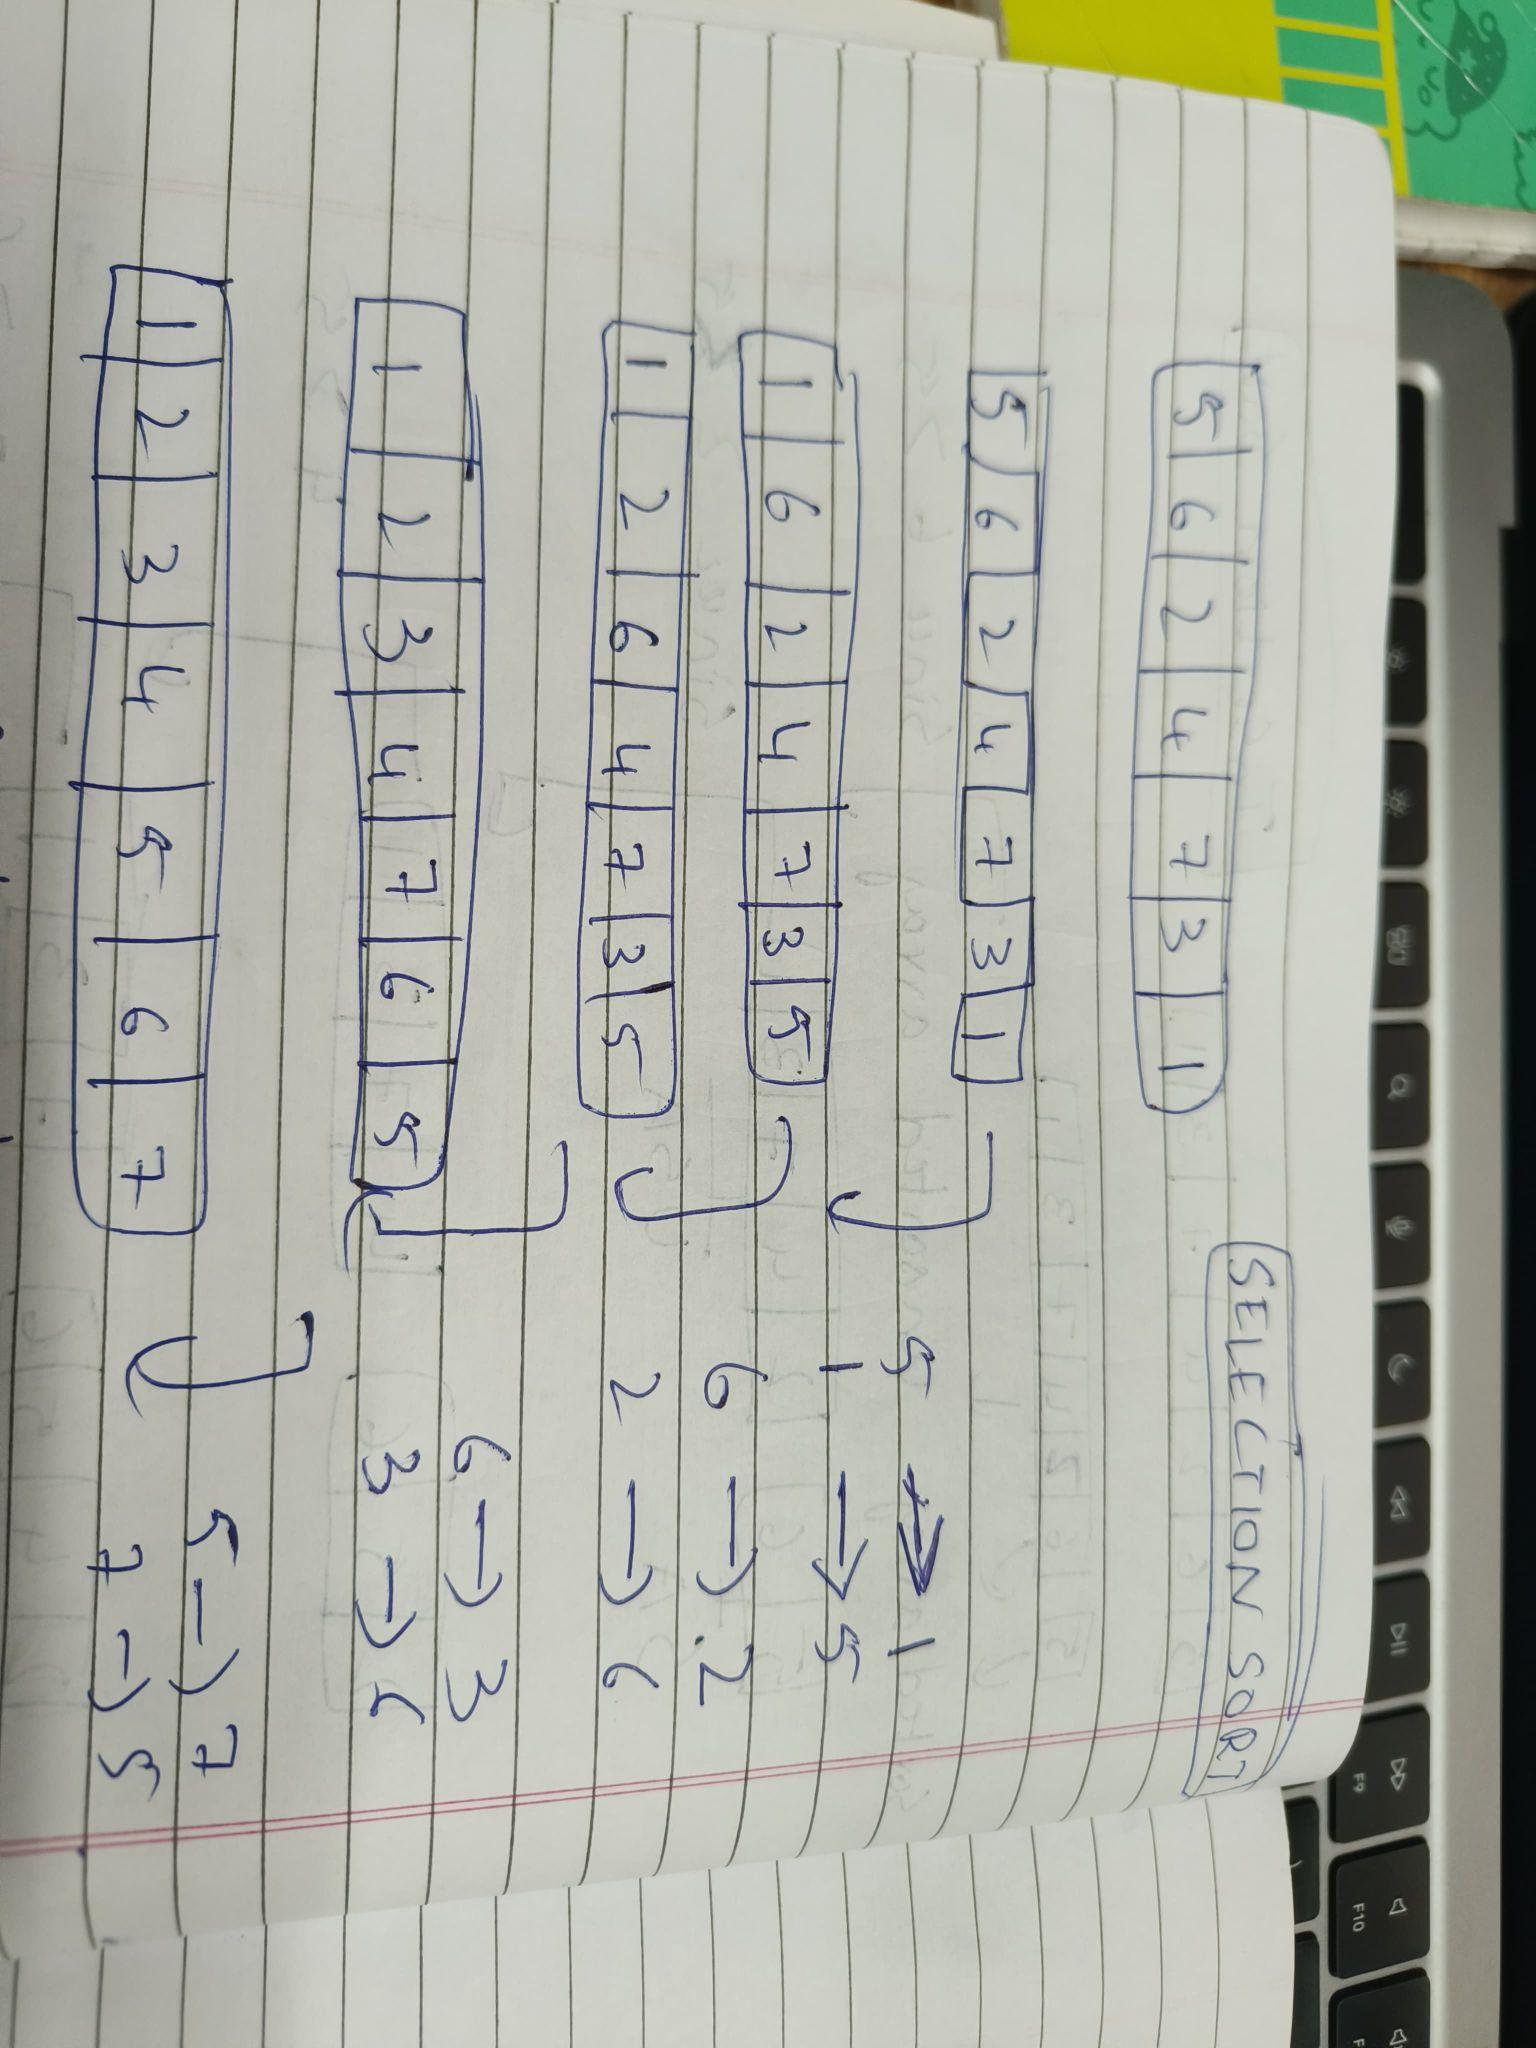 SELECTION SORT
5 6 2 4 7 3 1
5 6 2 4 7 3 1
5 → 1
1 → 5
1 6 2 4 7 3 5
6 → 2
2 → 6
1 2 6 4 7 3 5
6 → 3
3 → 6
1 2 3 4 7 6 5
5 → 7
7 → 5
1 2 3 4 5 6 7
F9
F10